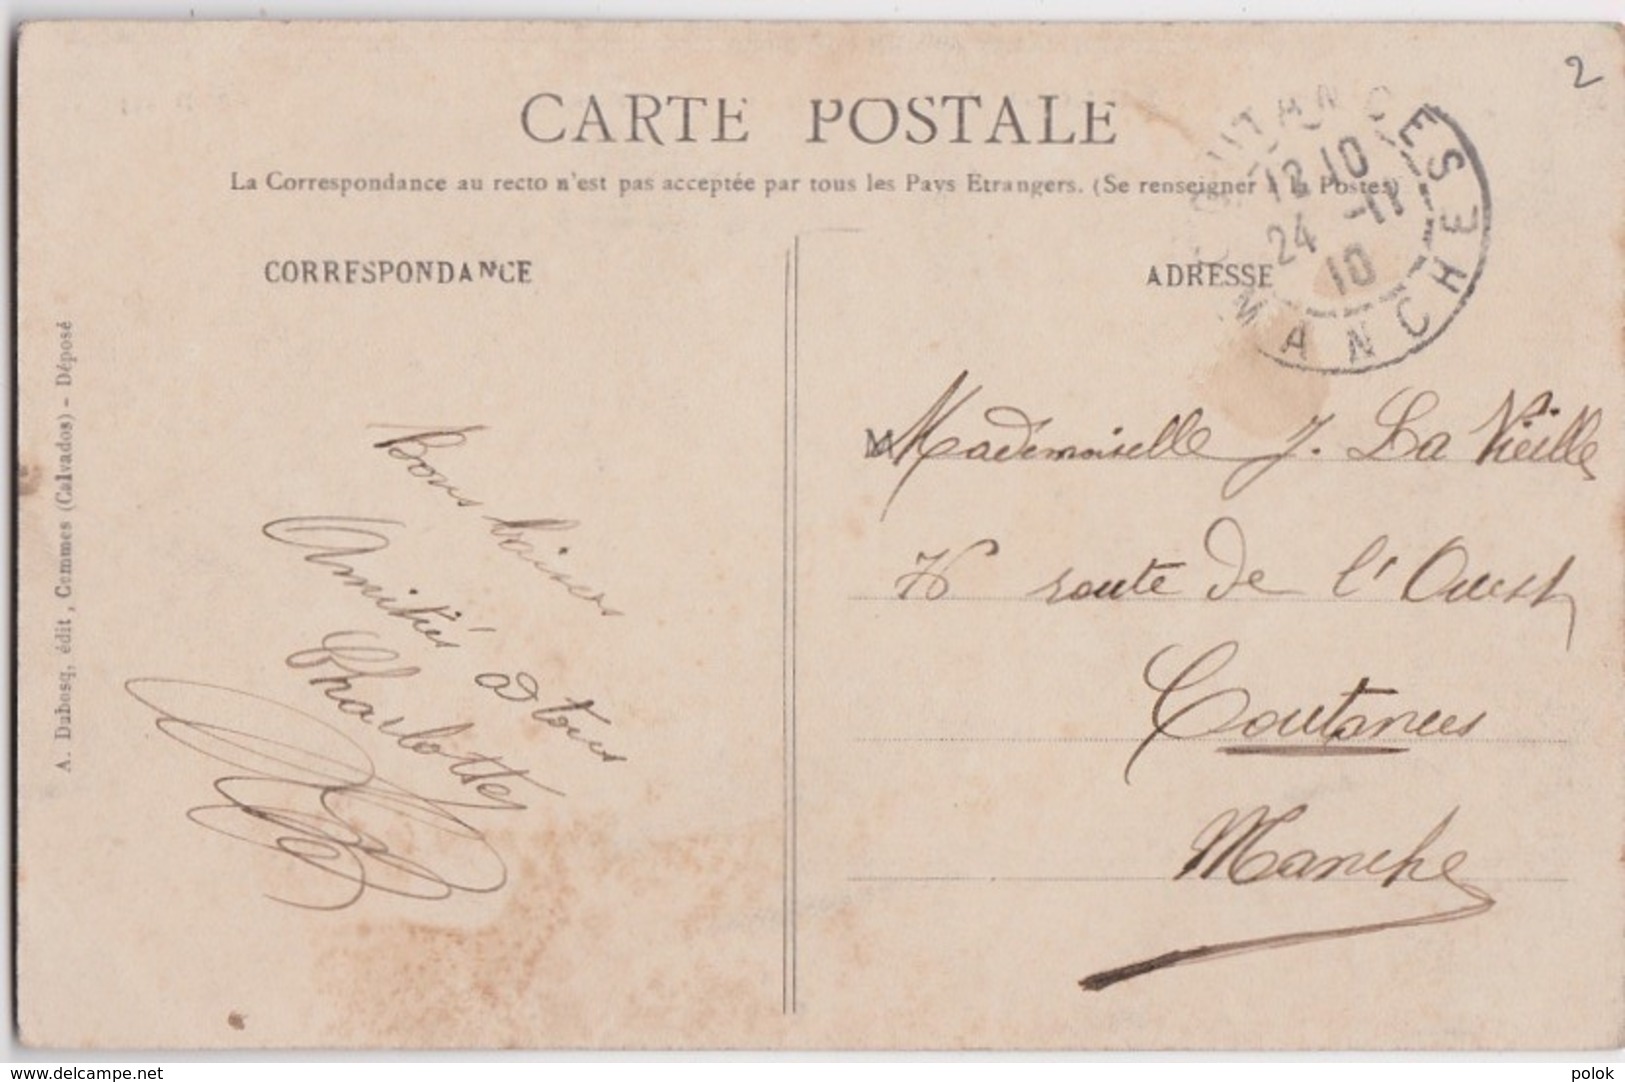 2
CARTE POSTALE
La Correspondance au recto n'est pas acceptée par tous les Pays Etrangers. (Se renseigner à la Poste.)
COUTANCES
12 10
24 -11
10
MANCHE
CORRESPONDANCE
ADRESSE
A. Dubosq, édit, Commes (Calvados) - Déposé
Bons baisers
Amitiés à tous
Charlotte
Mademoiselle J. La Vieille
76 route de l'Ouest
Coutances
Manche
www.delcampe.net
polok